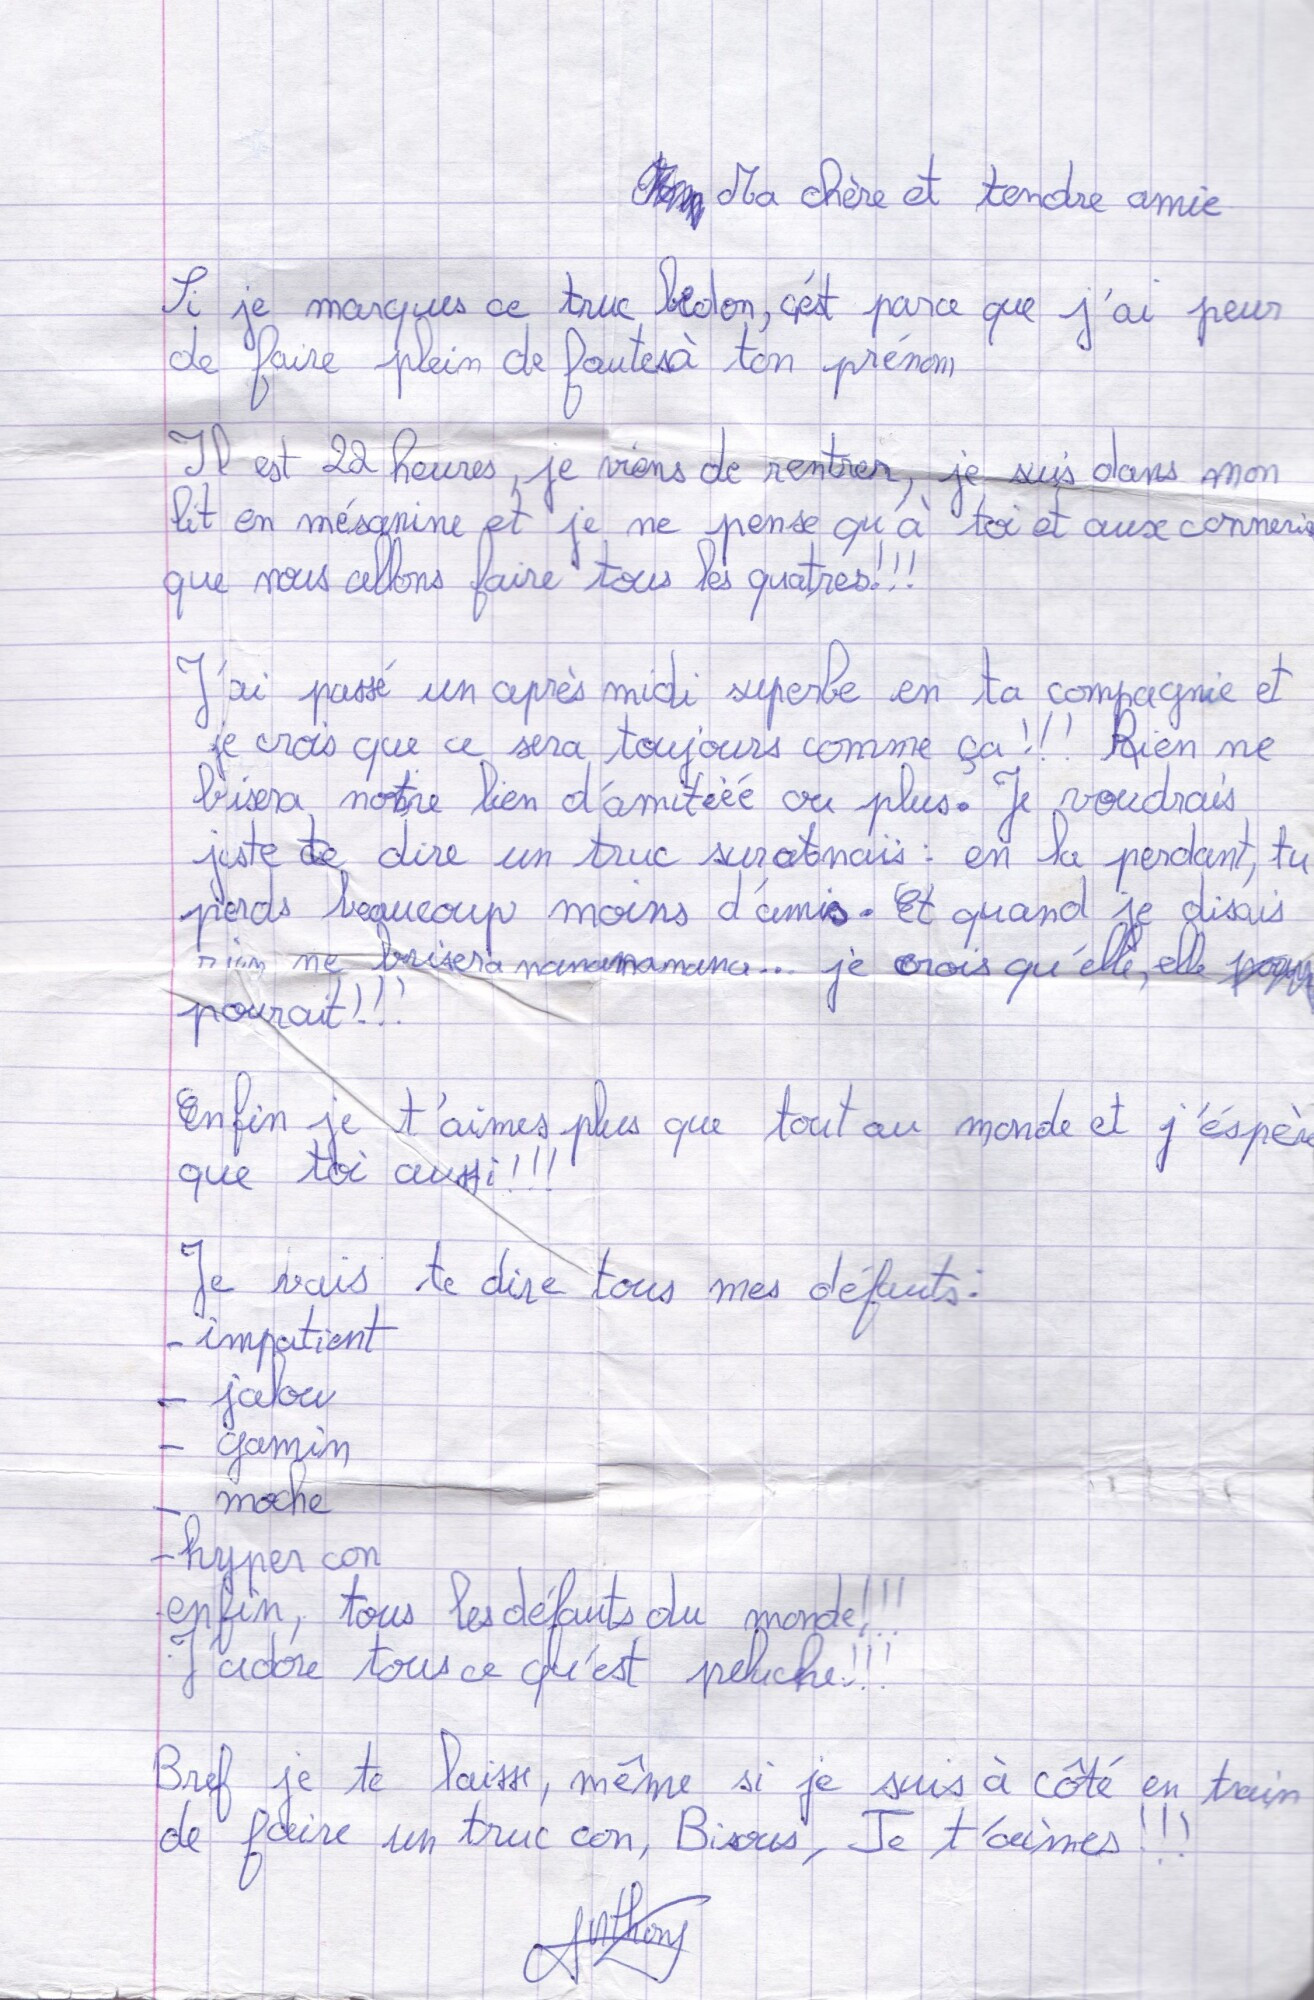 Ma chère et tendre amie
Si je marques ce truc bidon, c'ést parce que j'ai peur
de faire plein de fautes à ton prénom
Il est 22 heures, je viens de rentrer, je suis dans mon
lit en mésanine et je ne pense qu'à toi et aux conneries
que nous allons faire tous les quatres!!!
J'ai passé un après midi superbe en ta compagnie et
je crois que ce sera toujours comme ça!!! Rien ne
bisera notre lien d'amitéié ou plus. Je voudrais
juste te dire un truc sur : en la perdant, tu
perds beaucoup moins d'amis. Et quand je disais
rien ne brisera nananananana... je crois qu'elle, elle
pourait!!!
Enfin je t'aimes plus que tout au monde et j'éspère
que toi aussi!!!
Je vais te dire tous mes défauts:
- impatient
- jalou
- gamin
- moche
- hyper con
enfin, tous les défauts du monde!!!
J'adore tous ce qu'est peluche!!!
Bref je te laisse, même si je suis à côté en train
de faire un truc con, Bisous, Je t'aimes!!!
Anthony